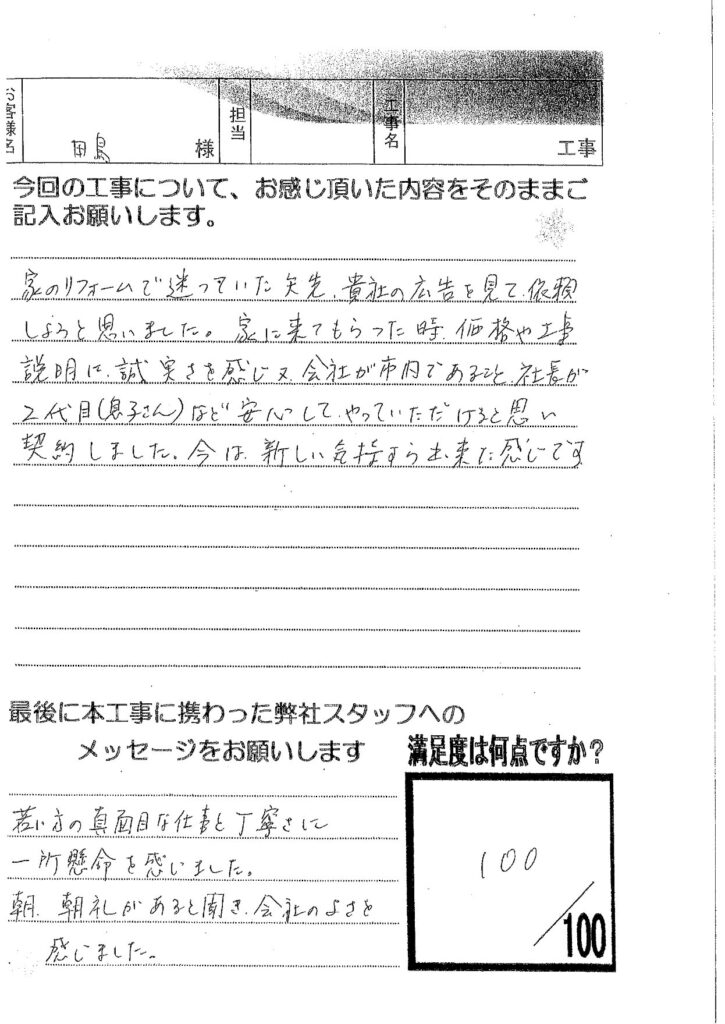 お客様名
田島 様
担当
工事名
工事
今回の工事について、お感じ頂いた内容をそのままご
記入お願いします。
家のリフォームで迷っていた矢先、貴社の広告を見て、依頼
しようと思いました。家に来てもらった時、価格や工事
説明に、誠実さを感じ又、会社が市内であること、社長が
2代目(息子さん)など安心して、やっていただけると思い
契約しました。今は、新しい気持すら出来た感じです
最後に本工事に携わった弊社スタッフへの
メッセージをお願いします
若い方の真面目な仕事と丁寧さに
一所懸命を感じました。
朝、朝礼があると聞き、会社のよさを
感じました。
満足度は何点ですか?
100
/100